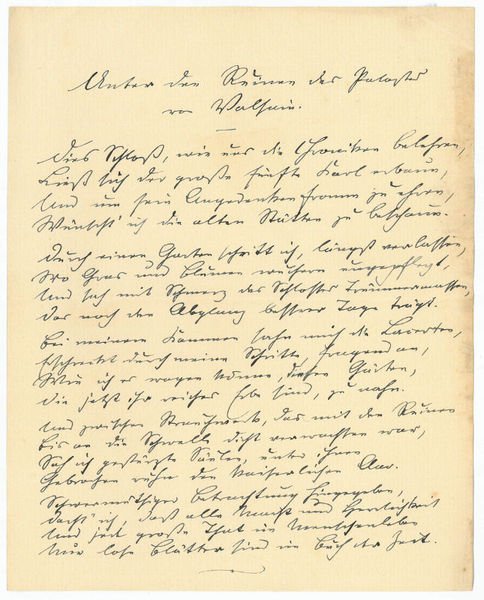 Unter den Ruinen des Palastes
von Valsain.
Dies Schloß, wie uns die Chroniken belehren,
Ließ sich der große fünfte Karl erbaun,
Und um sein Angedenken fromm zu ehren,
Wünscht' ich die alten Stätten zu beschaun.
Durch einen Garten schritt ich, längst verlassen,
Wo Gras und Blumen wuchern ungepflegt,
Und sah mit Schmerz des Schlosses Trümmermassen,
Das noch den Abglanz bessrer Tage trägt.
Bei meinem Kommen sahn mich die Lacerten,
Erschreckt durch meine Schritte, fragend an,
Wie ich es wagen könne, diesen Gärten,
Die jetzt ihr reiches Erbe sind, zu nahn.
Und zwischen Strauchwerk, das mit den Ruinen
Bis an die Schwelle dicht verwachsen war,
Sah ich gestürzte Säulen, unter ihnen
Gebrochen ruhn den Kaiserlichen Aar.
Schwermüthiger Betrachtung hingegeben,
Dacht' ich, daß alle Macht und Herrlichkeit
Und jede große That im Menschenleben
Nur lose Blätter sind im Buch der Zeit.